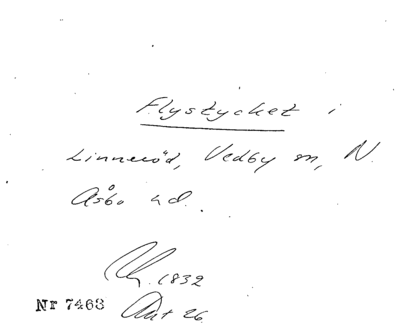 Flystycket i
Linneröd, Vedby sn, N.
Åsbo hd.
1832
Nr 7463 Akt 26